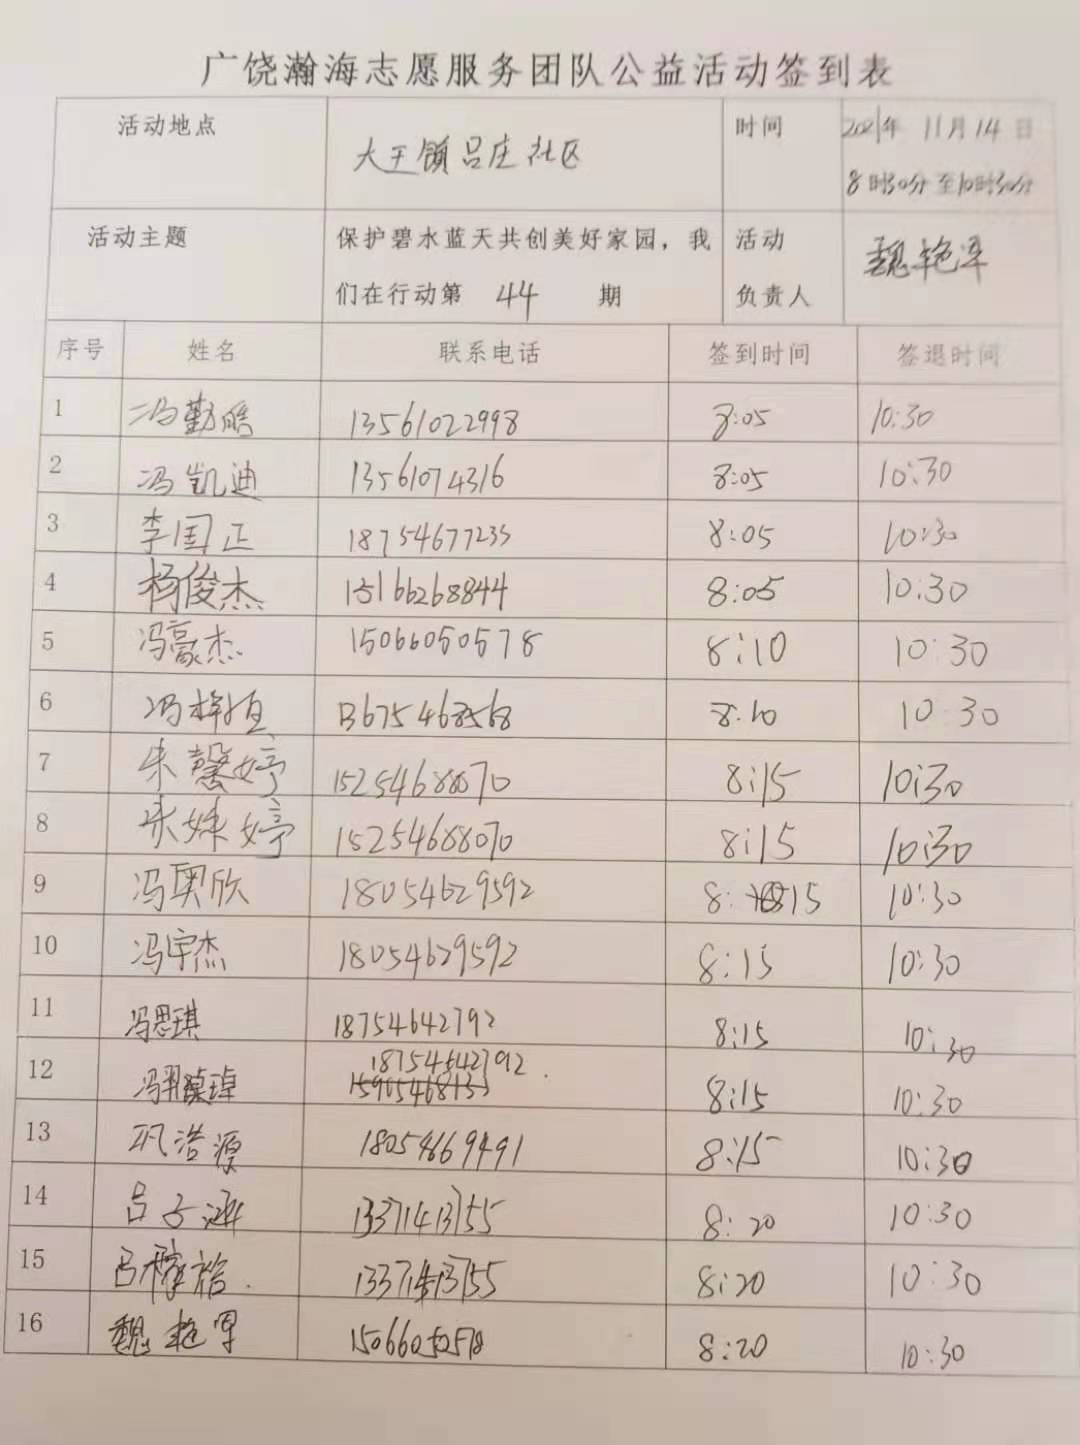 广饶瀚海志愿服务团队公益活动签到表
活动地点 大王镇吕庄社区 时间 2021年 11月14日
8时30分至10时30分
活动主题 保护碧水蓝天共创美好家园，我 活动 魏艳军
们在行动第 44 期 负责人
序号 姓名 联系电话 签到时间 签退时间
1 冯勤皓 13561022998 8:05 10:30
2 冯凯迪 13561074316 8:05 10:30
3 李国正 18754677233 8:05 10:30
4 杨俊杰 15166268844 8:05 10:30
5 冯豪杰 15066050578 8:10 10:30
6 冯梓恒 13675468568 8:10 10:30
7 朱馨婷 15254688070 8:15 10:30
8 朱姝婷 15254688070 8:15 10:30
9 冯奥欣 18054629592 8:15 10:30
10 冯宇杰 18054629592 8:15 10:30
11 冯思琪 18754642792 8:15 10:30
12 18754642792 8:15 10:30
13 巩浩源 18054669491 8:15 10:30
14 吕子涵 13371413755 8:20 10:30
15 13371413755 8:20 10:30
16 魏艳军 15066050578 8:20 10:30